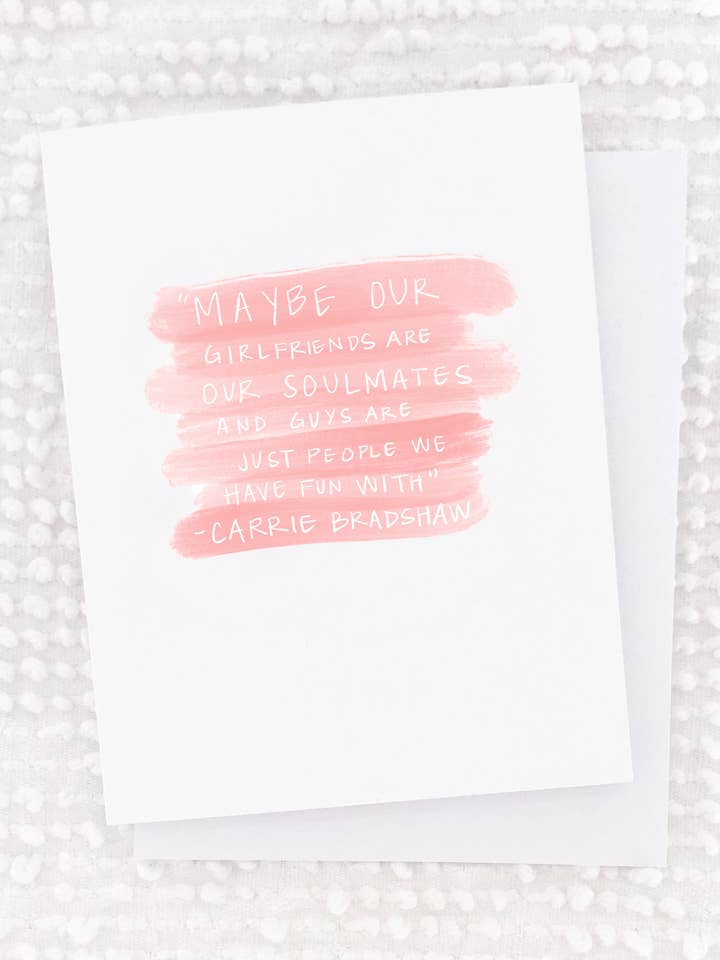 "MAYBE OUR
GIRLFRIENDS ARE
OUR SOULMATES
AND GUYS ARE
JUST PEOPLE WE
HAVE FUN WITH"
-CARRIE BRADSHAW